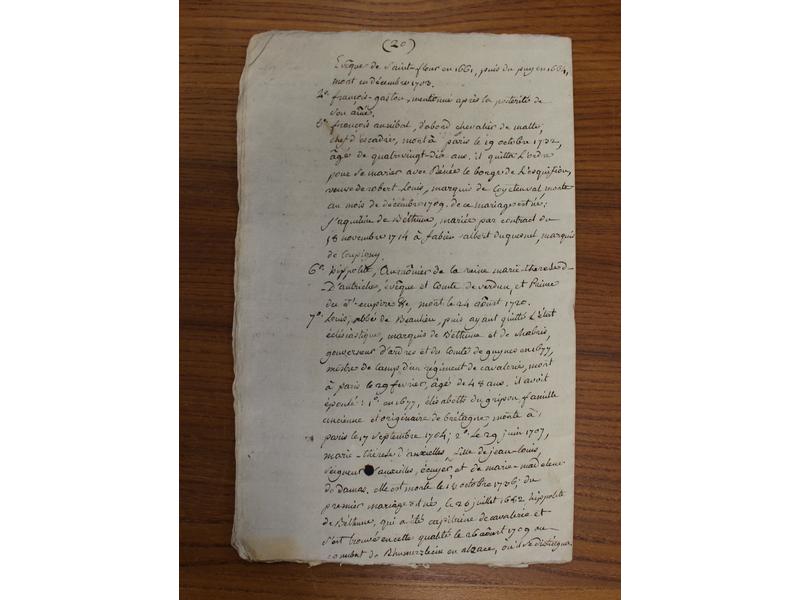 (20)
Evêque de Saint-flour en 1661, puis du puy en 1664,
mort en décembre 1703.
françois-gaston, mentionné après la postérité de
son aîné.
françois annibal, d'abord chevalier de malte,
chef d'escadre, mort à paris le 19 octobre 1732,
âgé de quatre vingt-dix ans. il quitta l'ordre
pour se marier avec Renée le borgne de l'esquifiou,
veuve de robert Louis, marquis de morte
au mois de décembre 1709. de ce mariage est né:
j'aquéline de Béthune, mariée par contract du
18 novembre 1714 à fabien albert duquesnel, marquis
de coupigny.
6°. hippolite, Aumônier de la reine marie-thérese d-
D'autriche, évêque et comte de verdun, et Prince
du St. empire &c, mort le 24 août 1720.
7°. Louis, abbé de Beaulieu, puis ayant quitté L'état
éclésiastique, marquis de Béthune et de Chabris,
gouverneur d'ardres et du comté de guynes en 1677,
mestre de camp d'un régiment de cavalerie, mort
à paris le 29 février, âgé de 48 ans. il avoit
épousé: 1°. en 1677, élisabeth du gripon, famille
ancienne et originaire de bretagne, morte à
paris le 17 septembre 1704; 2°. Le 29 juin 1707,
marie-thérèse d'auxielles, fille de jean-louis,
seigneur d'auxielles, écuyer et de marie-madelene
de Damas. elle est morte le 18 octobre 1736; du
premier mariage est né, le 26 juillet 1682 hippolite
de Béthune, qui a été capitaine de cavalerie et
s'est trouvé en cette qualité le 26 août 1709 au
combat de Rhumersheim en alzace, où il se distingua